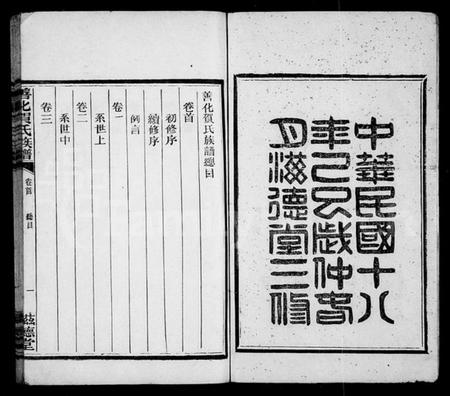 中華民國十八
年己巳歲仲春
月滋德堂三修
善化賀氏族譜總目
卷首
初修序
續修序
例言
卷一
系世上
卷二
系世中
卷三
善化賀氏族譜
卷首
總目
一
滋德堂